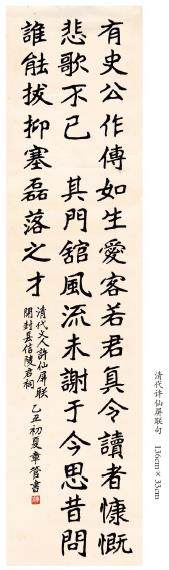 有史公作傳如生愛客若君真令讀者慷慨
悲歌不已 其門舘風流未謝于今思昔問
誰能拔抑塞磊落之才
清代文人許仙屏联
開封县信陵君祠
乙丑初夏章管書
清代许仙屏联句 136cm×33cm